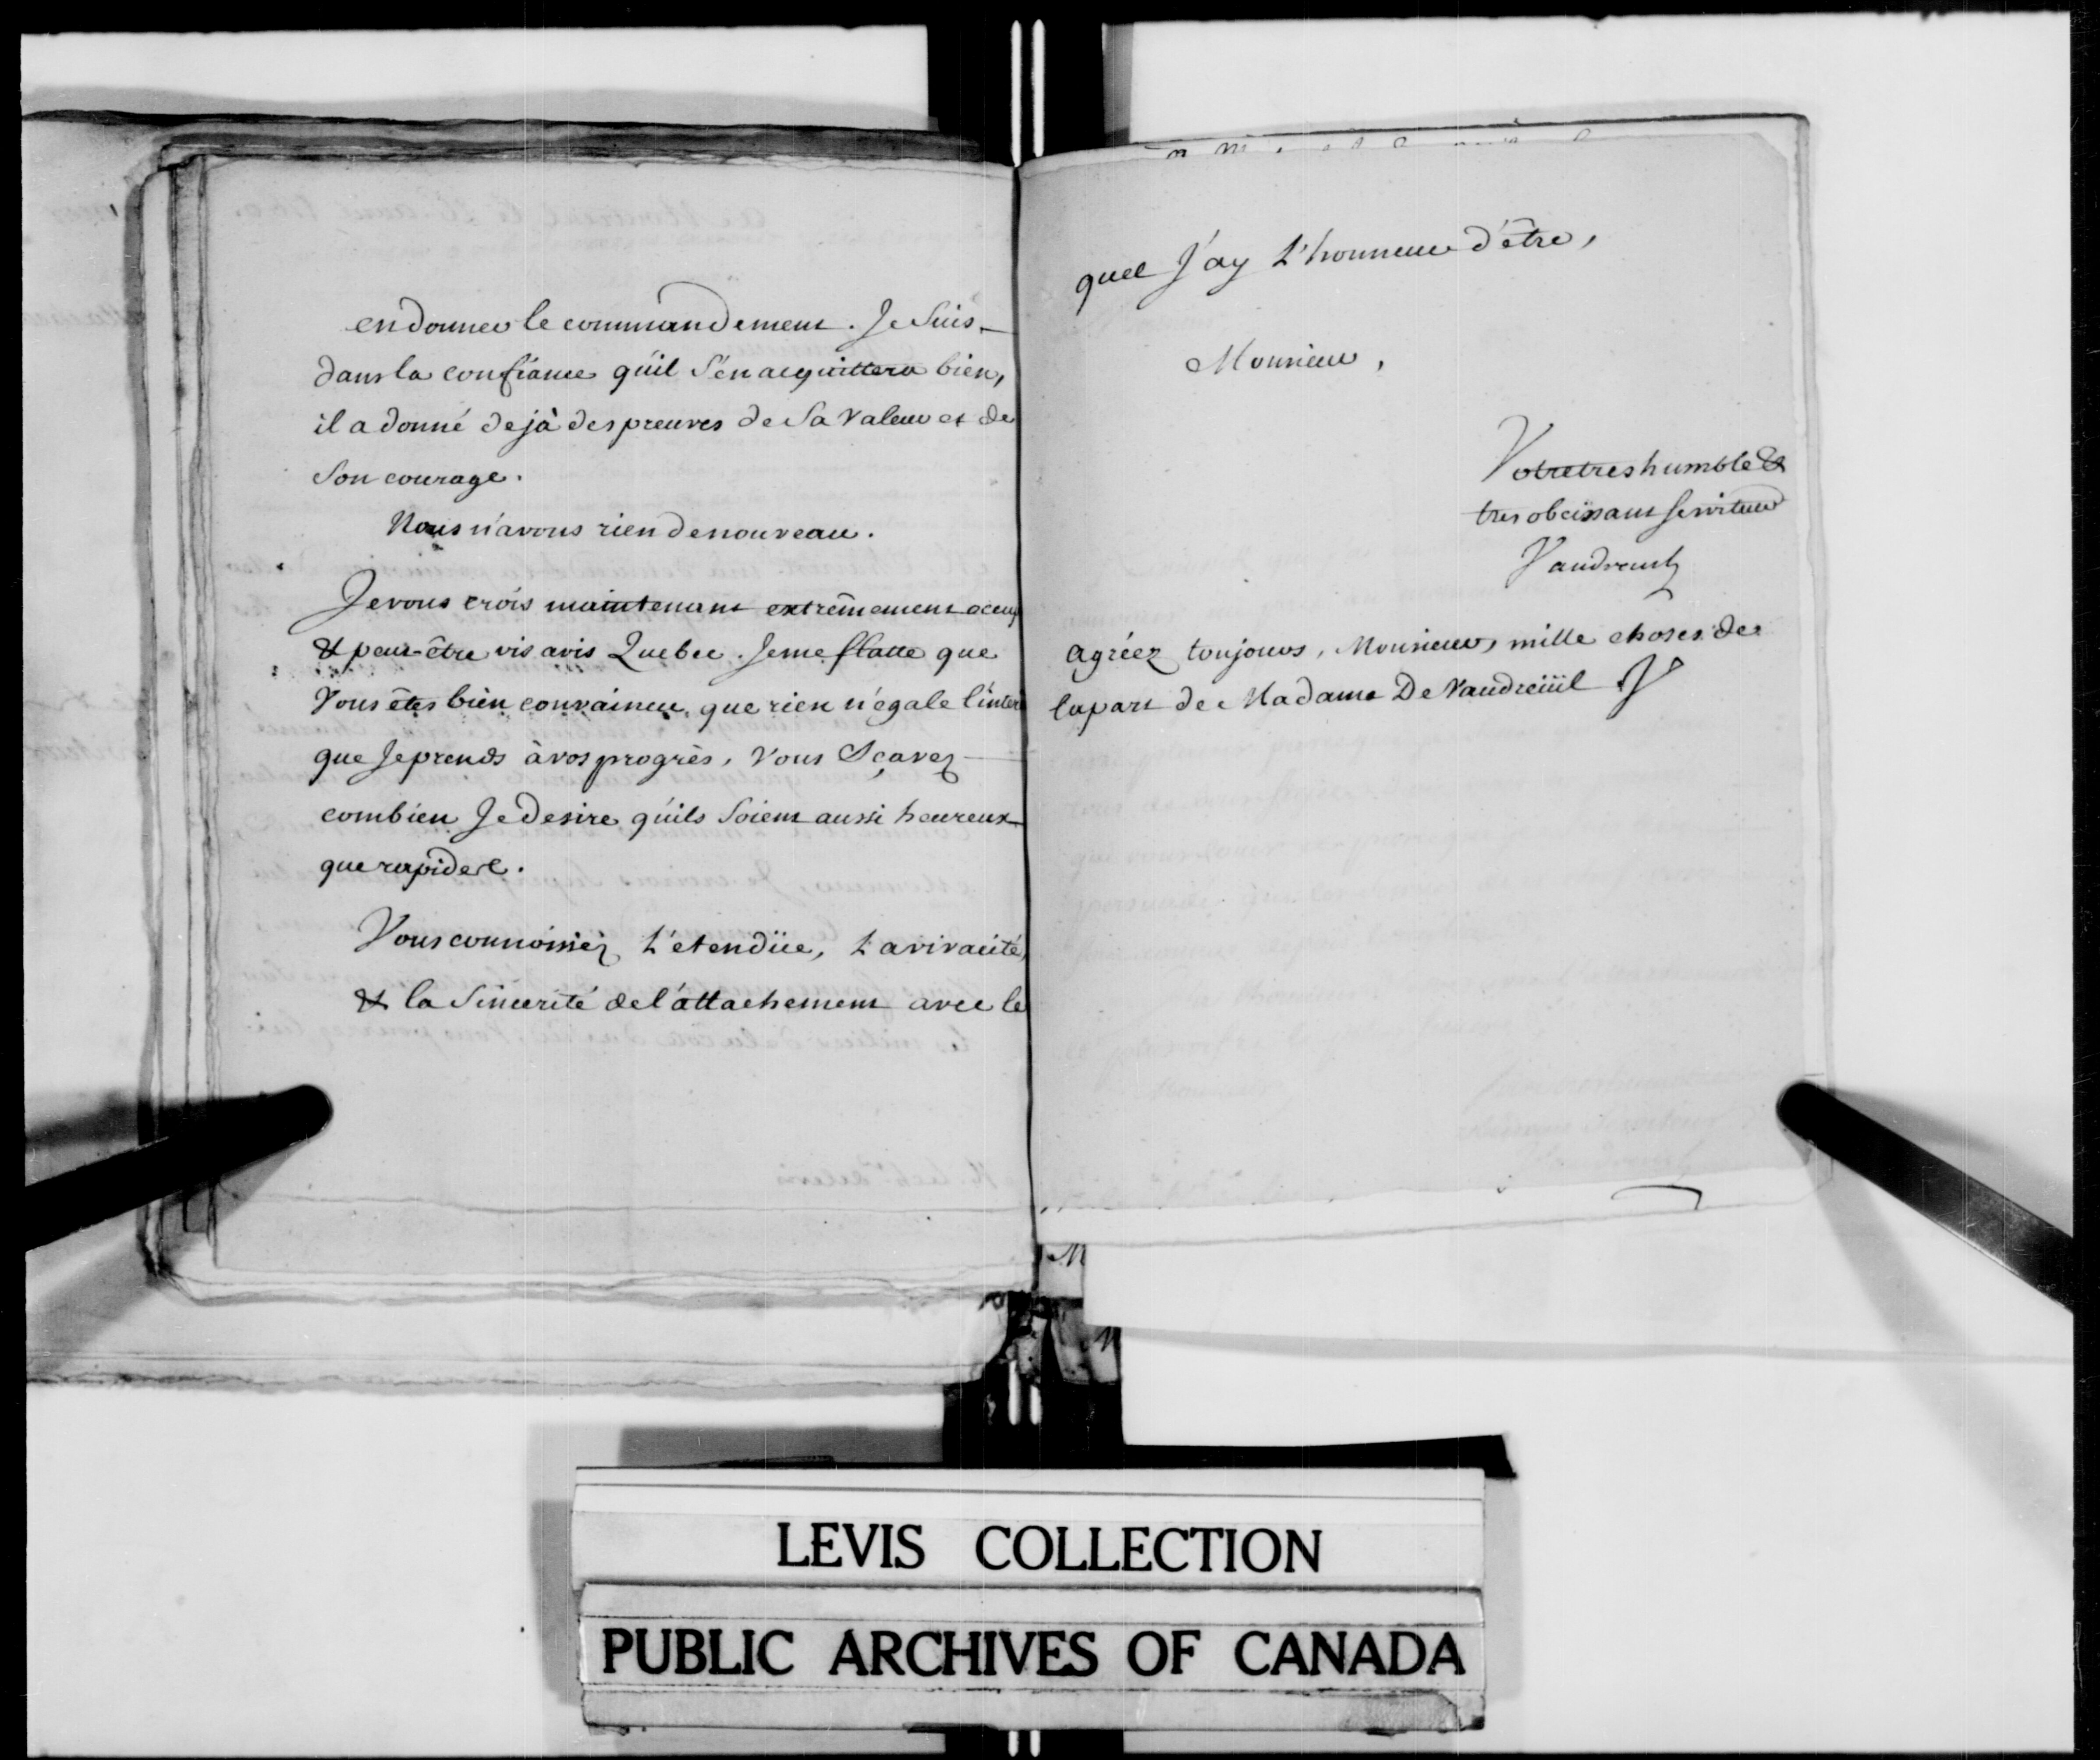 en donner le commandement. Je Suis
dans la confiance qu'il S'en acquittera bien,
il a donné deja des preuves de Sa Valeur et de
Son courage.
Nous n'avons rien de nouveau.
Je vous crois maintenant extrêmement occup
& peut-être vis avis Quebec. Je me flatte que
Vous êtes bien convaincu, que rien n'égale l'inter
que Je prends à vos progrès, Vous Sçavez
combien Je desire qu'ils Soient aussi heureux
que rapides.
Vous connoissiéz L'etendüe, La vivacité,
& la Sincerité de l'attachement avec le
quel J'ay L'honneur d'être,
Monsieur,
Votre tres humble &
tres obeissant Serviteur
Vaudreuil
agréez toujours, Monsieur, mille choses de
la part de Madame De Vaudreüil
LEVIS COLLECTION
PUBLIC ARCHIVES OF CANADA